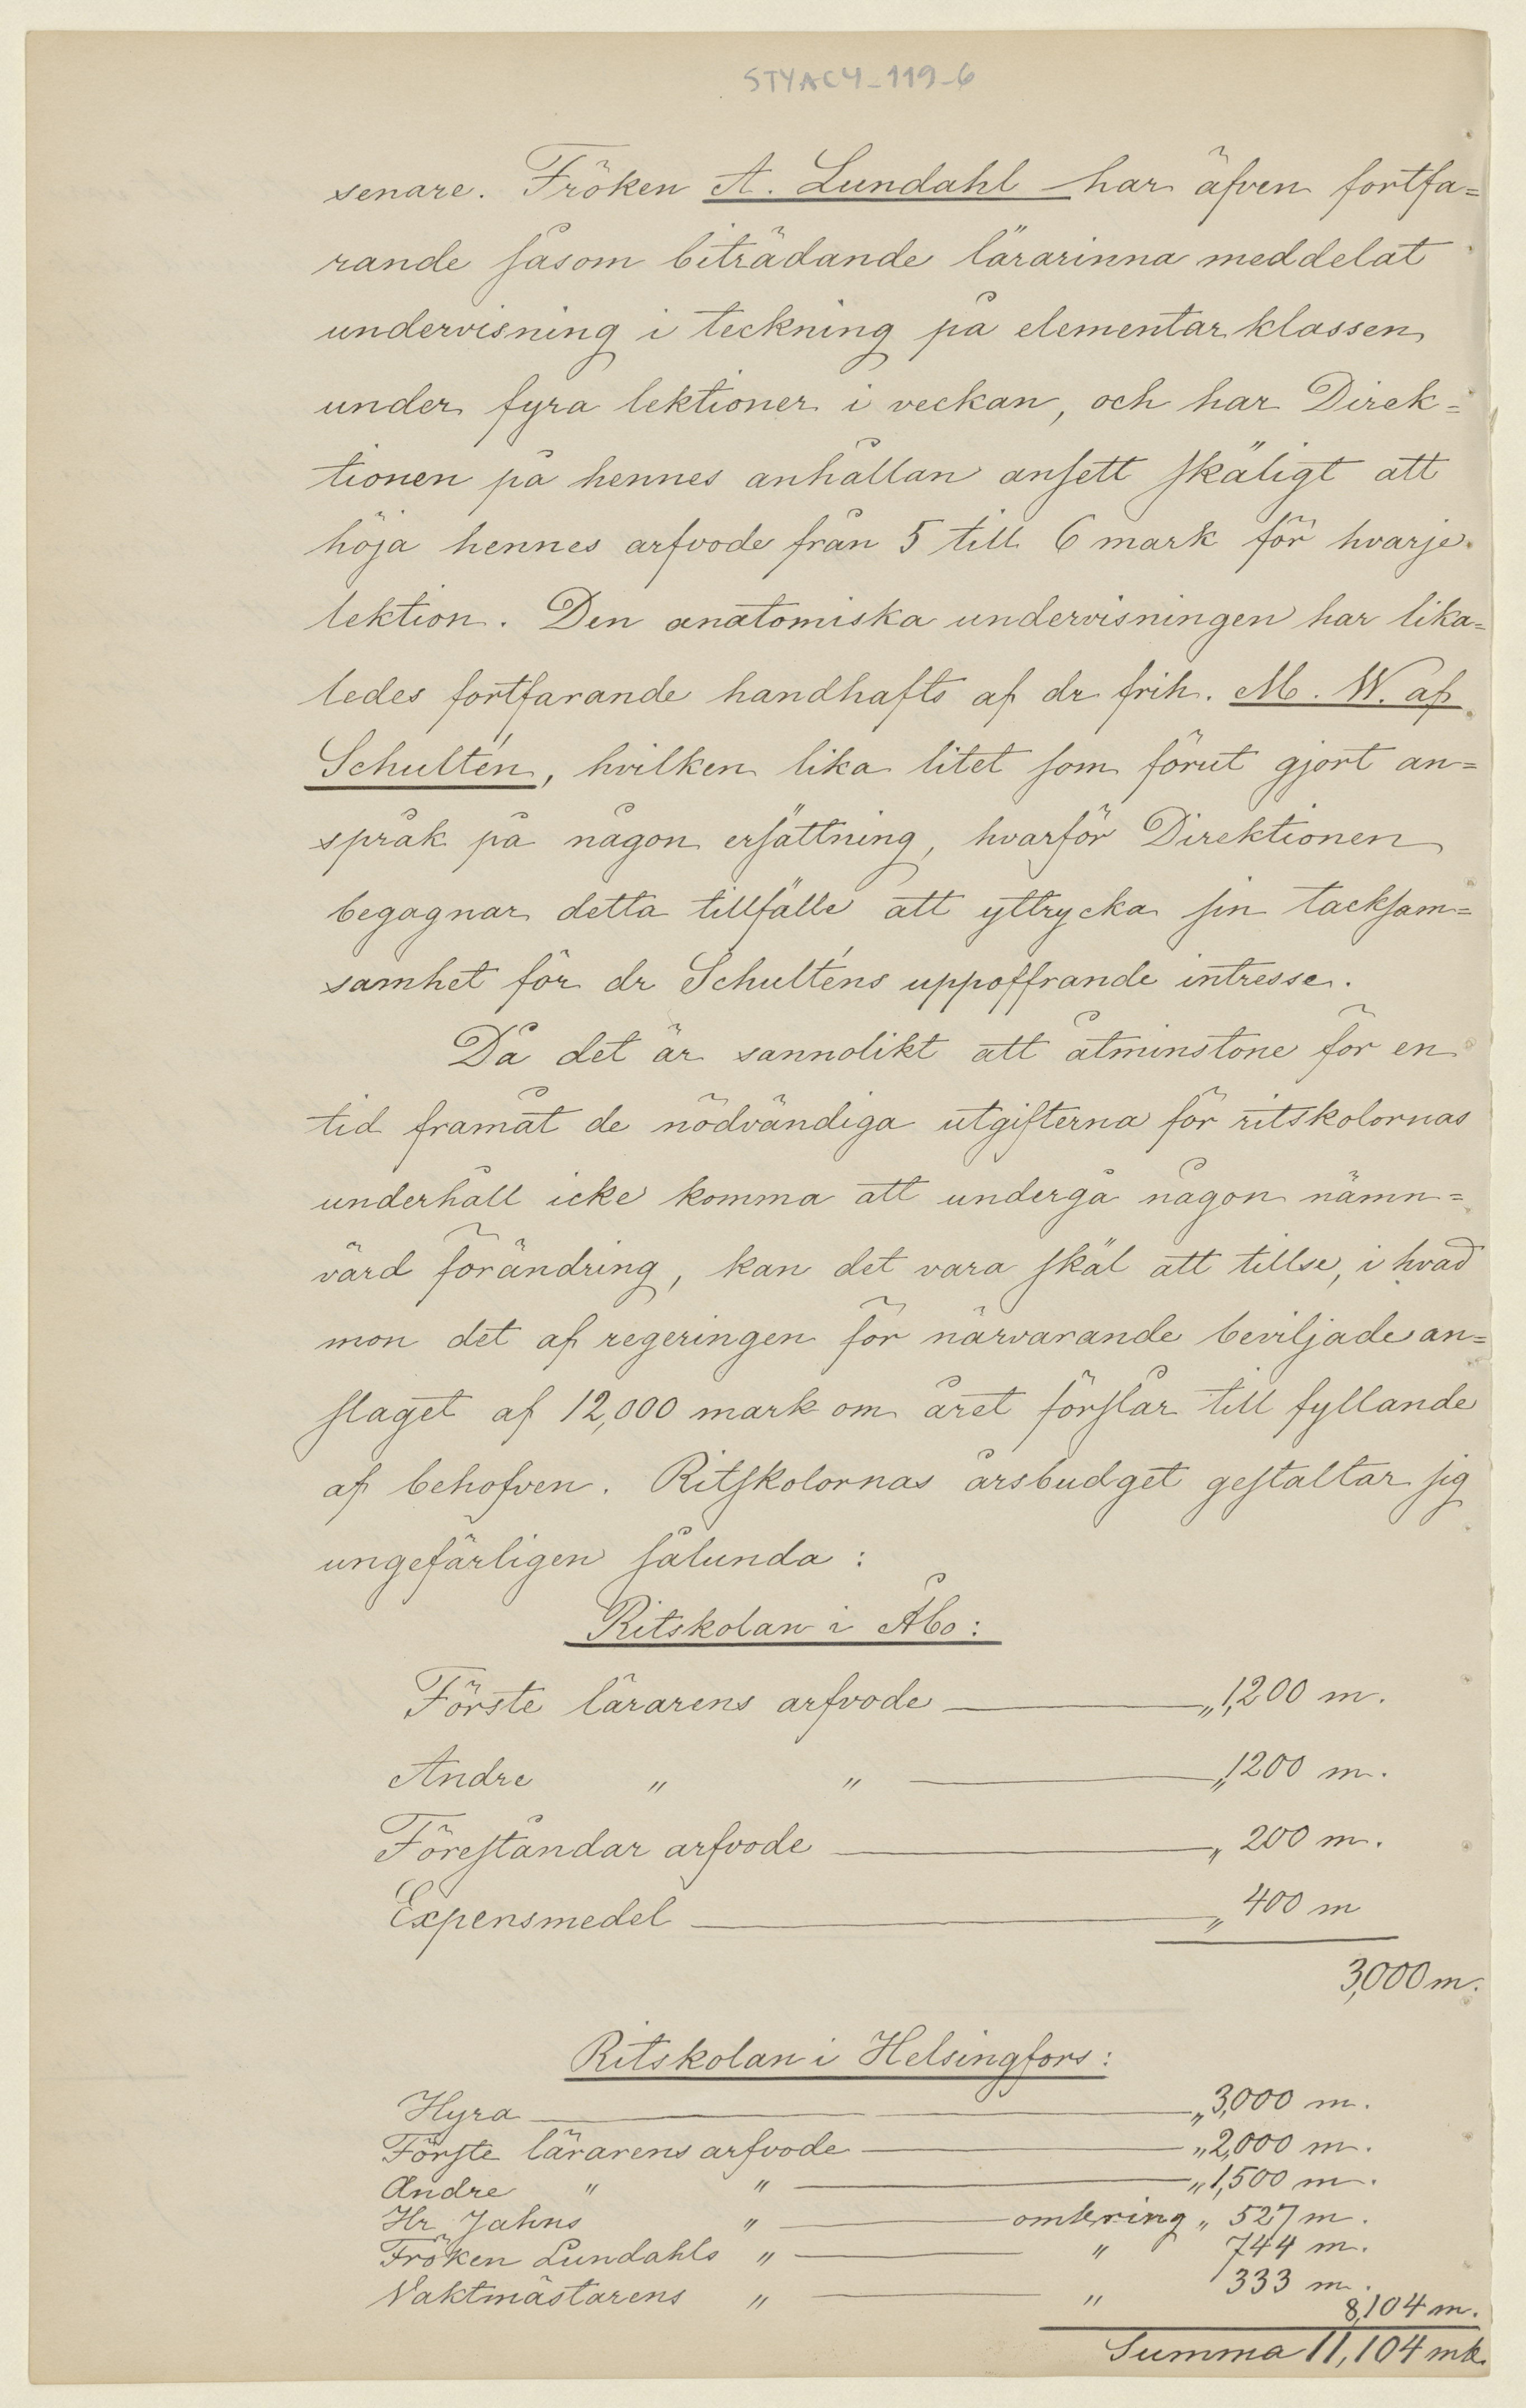 STYAC4-119-6
senare. Fröken A. Lundahl har äfven fortfa=
rande såsom biträdande lärarinna meddelat
undervisning i teckning på elementarklassen
under fyra lektioner i veckan, och har Direk=
tionen på hennes anhållan ansett skäligt att
höja hennes arfvode från 5 till 6 mark för hvarje
lektion. Den anatomiska undervisningen har lika=
ledes fortfarande handhafts af dr frih. M. W. af
Schultén, hvilken lika litet som förut gjort an=
språk på någon ersättning, hvarför Direktionen
begagnar detta tillfälle att yttrycka sin tacksam=
samhet för dr Schulténs uppoffrande intresse.
Då det är sannolikt att åtminstone för en
tid framåt de nödvändiga utgifterna för ritskolornas
underhåll icke komma att undergå någon nämn=
värd förändring, kan det vara skäl att tillse, i hvad
mon det af regeringen för närvarande beviljade an=
slaget af 12,000 mark om året förslår till fyllande
af behofven. Ritskolornas årsbudget gestaltar sig
ungefärligen sålunda:
Ritskolan i Åbo:
Förste lärarens arfvode — „ 1,200 m.
Andre " " — „ 1200 m.
Föreståndar arfvode — „ 200 m.
Expensmedel — „ 400 m
3,000 m.
Ritskolan i Helsingfors:
Hyra — „ 3,000 m.
Förste lärarens arfvode — „ 2,000 m.
Andre " " — „ 1,500 m.
Hr Jahns " — omkring „ 527 m.
Fröken Lundahls " — " 744 m.
Vaktmästarens " — " 333 m.
8,104 m.
Summa 11,104 mk.